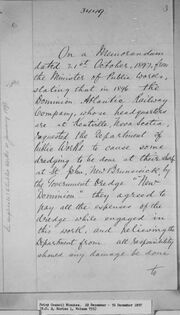 3449
3
On a Memorandum
dated 21st October, 1897, from
the Minister of Public Works,
stating that in 1896 the
Dominion Atlantic Railway
Company, whose headquarters
are at Kentville, Nova Scotia,
requested the Department of
Public Works to cause some
dredging to be done at their wharf
at St. John, New Brunswick, by
the Government Dredge "New
Dominion" they agreed to
pay all the expenses of the
dredge while engaged in
this work, and relieving the
Department from all responsibility
should any damage be done
to
Privy Council Minutes, 22 December - 30 December 1897
R.G. 2, Series 1, Volume